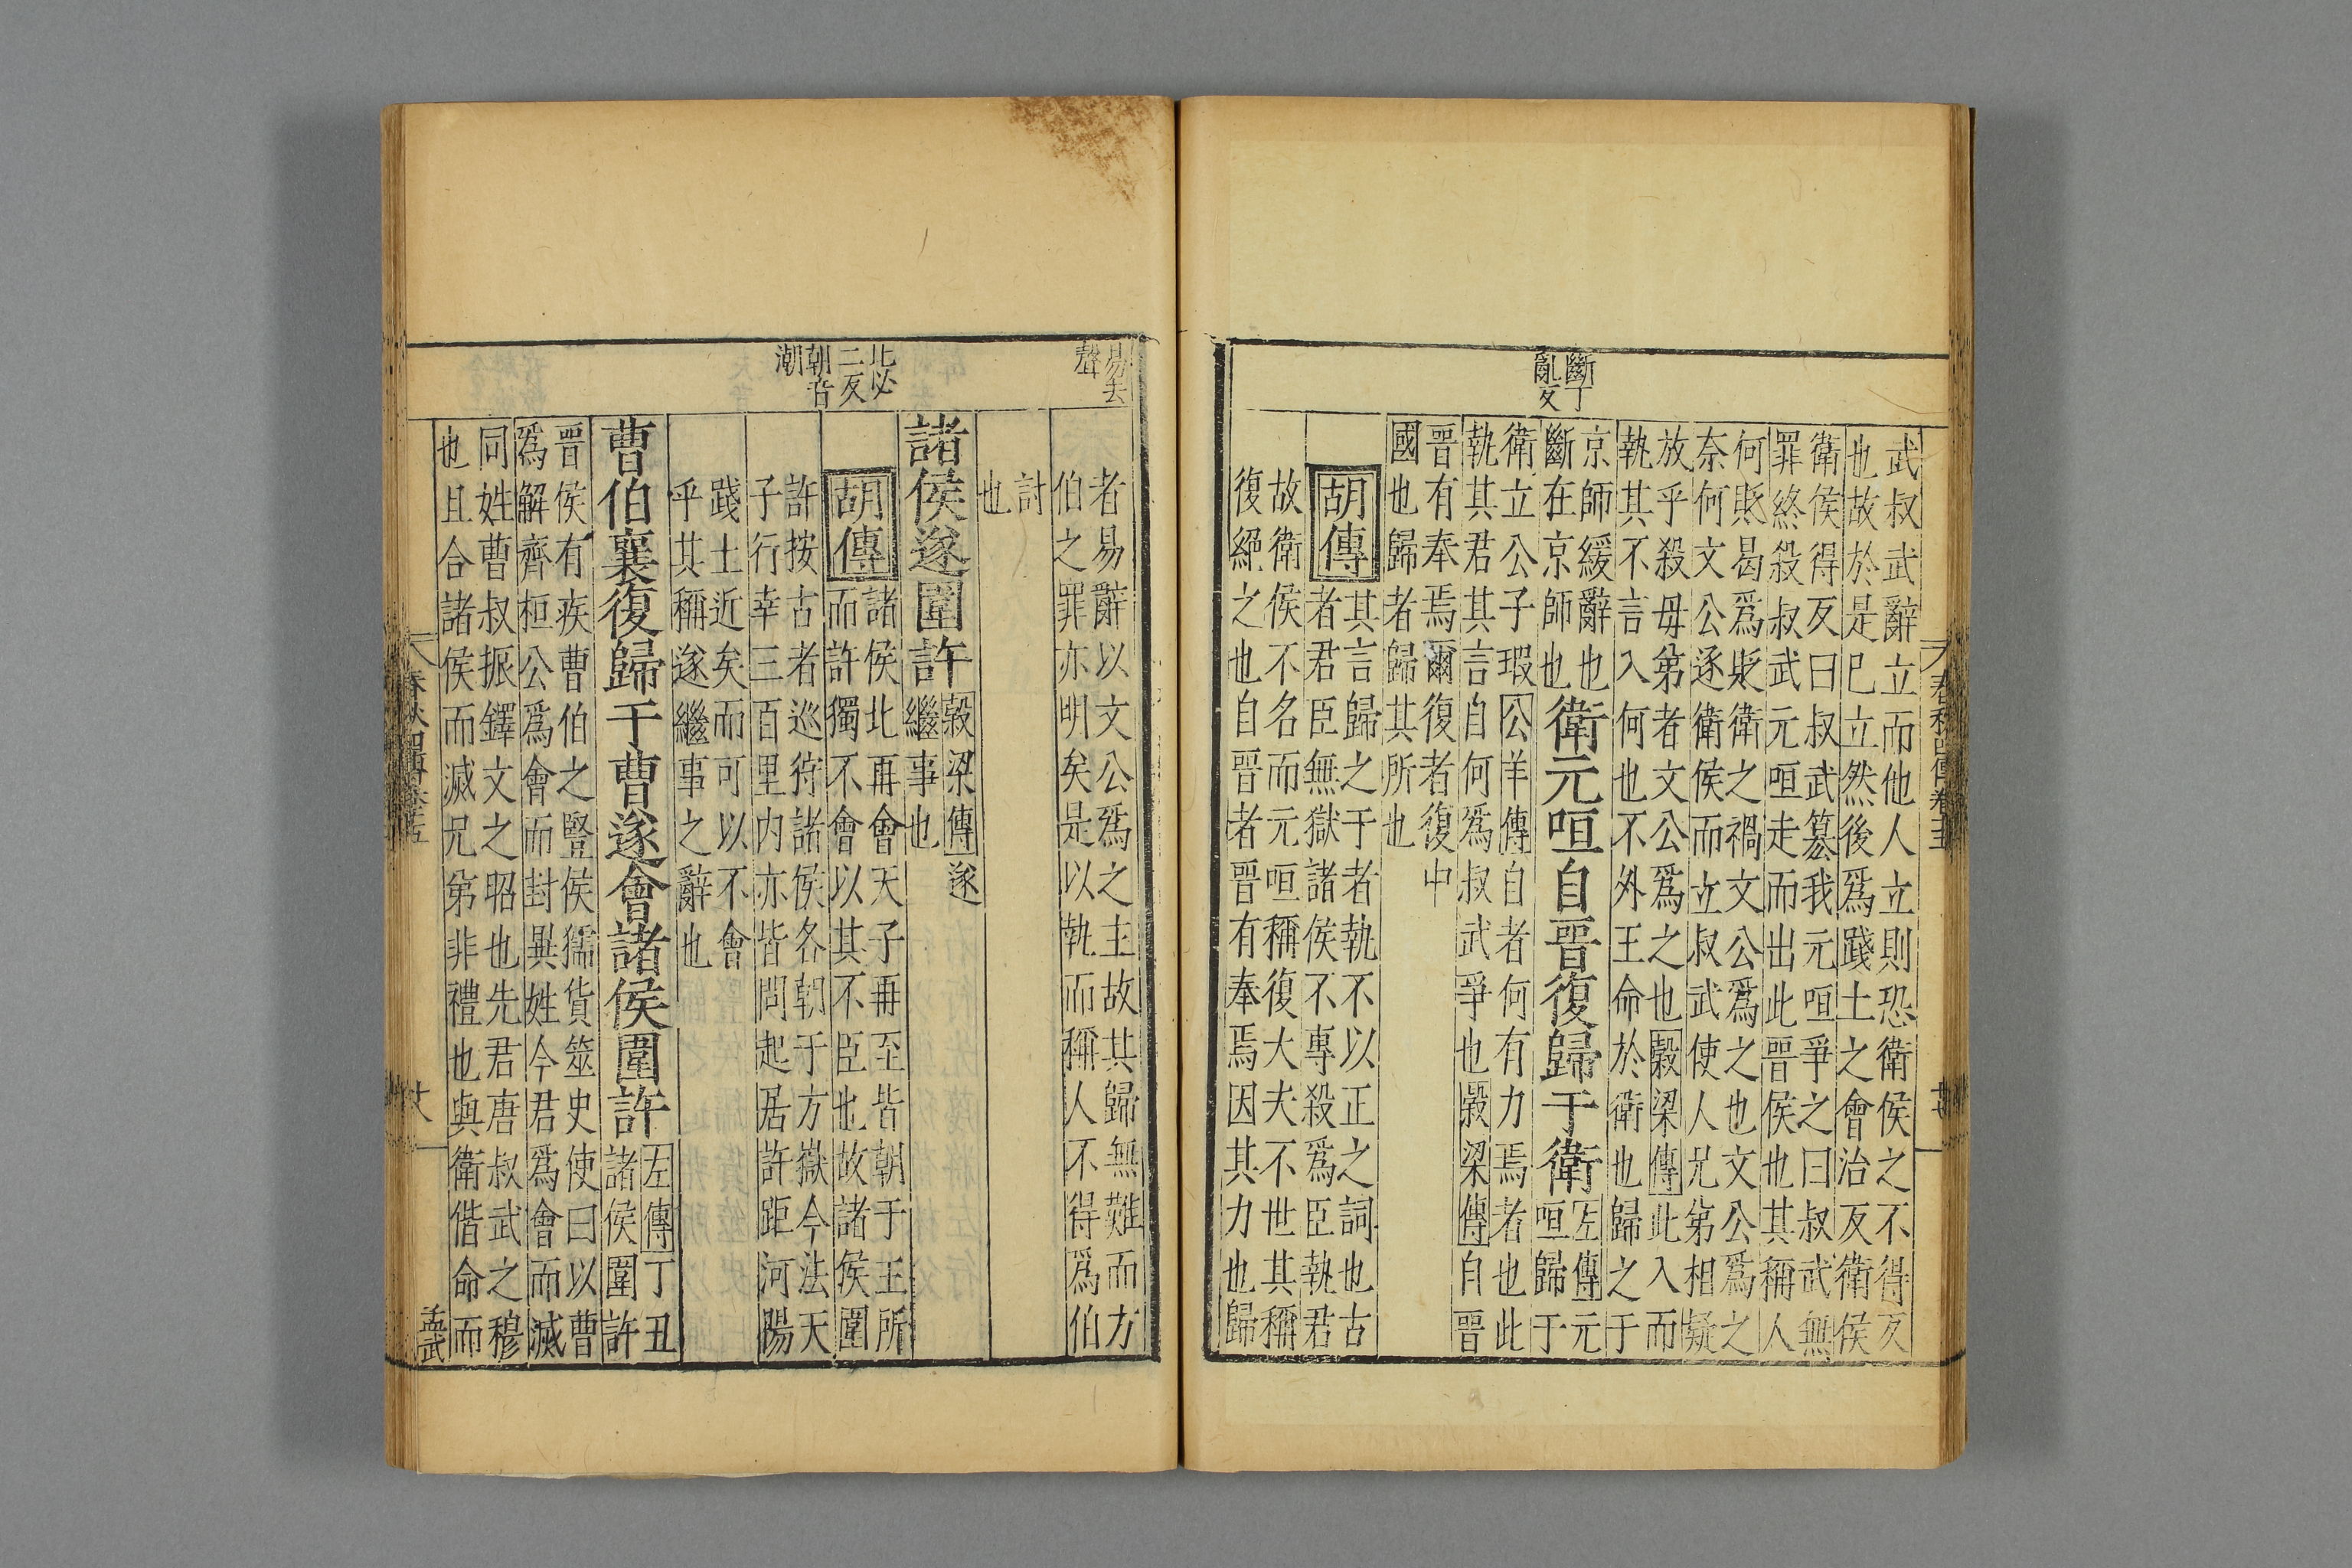 春秋四傳卷十五
斷丁
亂反
武叔武辭立而他人立則恐衛侯之不得反
也故於是已立然後爲踐土之會治反衛侯
衛侯得反曰叔武簒我元咺爭之曰叔武無
罪終殺叔武元咺走而出此晉侯也其稱人
何貶曷爲貶衛之禍文公爲之也文公爲之
奈何文公逐衛侯而立叔武使人兄第相疑
放乎殺毋第者文公爲之也穀梁傳此入而
執其不言入何也不外王命於衛也歸之于
京師緩辭也
斷在京師也
衛元咺自晉復歸于衛
左傳元
咺歸于
衛立公子瑕公羊傳自者何有力焉者也此
執其君其言自何爲叔武爭也穀梁傳自晉
晉有奉焉爾復者復中
國也歸者歸其所也
胡傳
其言歸之于者執不以正之詞也古
者君臣無獄諸侯不專殺爲臣執君
故衛侯不名而元咺稱復大夫不世其稱
復絕之也自晉者晉有奉焉因其力也歸
易去
聲
者易辭以文公爲之主故其歸無難而方
伯之罪亦明矣是以執而稱人不得爲伯
討
也
諸侯遂圍許
穀梁傳遂
繼事也
北必
二反
朝音
潮
胡傳
諸侯北再會天子再至皆朝于王所
而許獨不會以其不臣也故諸侯圍
許按古者巡狩諸侯各朝于方嶽今法天
子行幸三百里内亦皆問起居許距河陽
踐土近矣而可以不會
乎其稱遂繼事之辭也
曹伯襄復歸于曹遂會諸侯圍許
左傳丁丑
諸侯圍許
晉侯有疾曹伯之豎侯獳貨筮史使曰以曹
爲解齊桓公爲會而封異姓今君爲會而滅
同姓曹叔振鐸文之昭也先君唐叔武之穆
也且合諸侯而滅兄第非禮也與衛偕命而
孟武